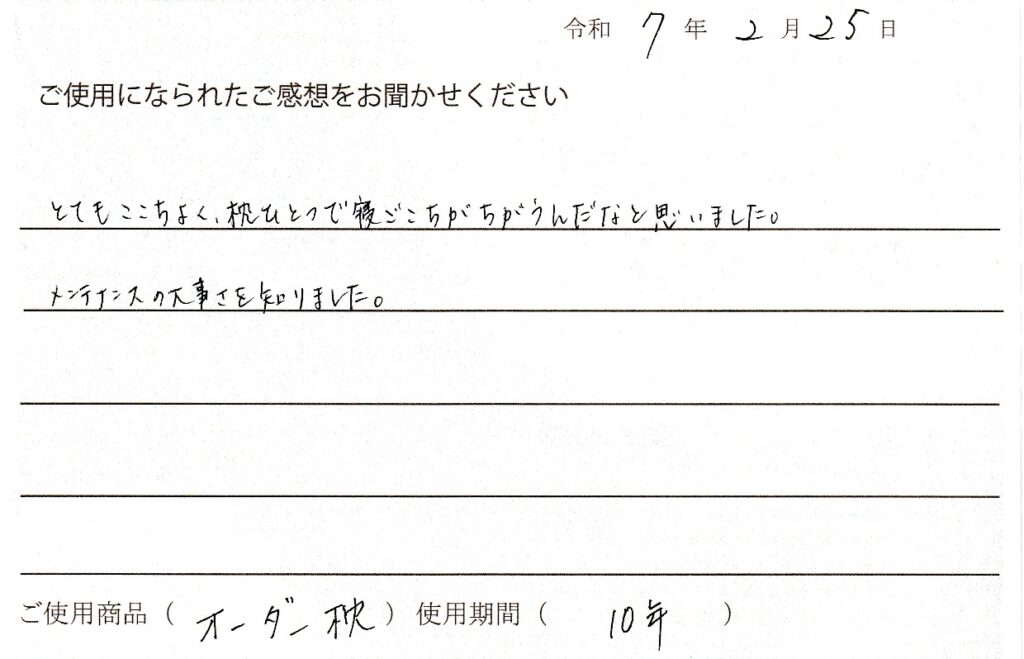 令和 7 年 2 月 25 日
ご使用になられたご感想をお聞かせください
とてもここちよく、枕ひとつで寝ごこちがちがうんだなと思いました。
メンテナンスの大事さを知りました。
ご使用商品（ オーダー枕 ）使用期間（ 10年 ）